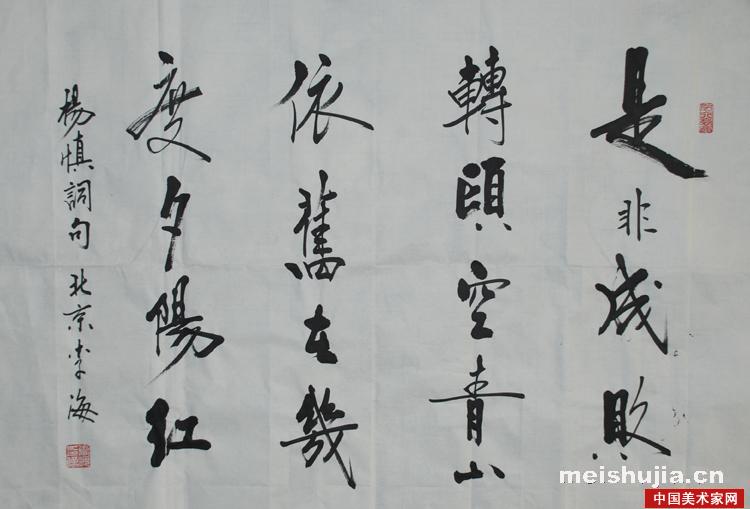 是非成敗
轉頭空青山
依舊在幾
度夕陽紅
楊慎詞句 北京李海
meishujia.cn
中国美术家网